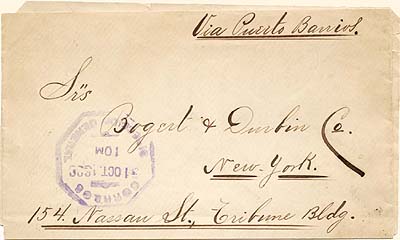 Via Puerto Barrios.
Srs
Bogert & Durbin Co.
New-York.
154. Nassau St., Tribune Bldg.
CORREOS
OCT. 
10M
GENERAL